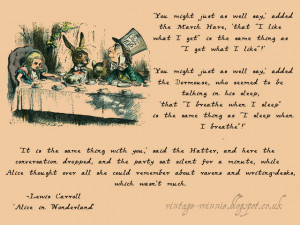 'You might just as well say,' added
the March Hare, 'that "I like
what I get" is the same thing as
"I get what I like"!'
'You might just as well say,' added
the Dormouse, who seemed to be
talking in his sleep,
'that "I breathe when I sleep"
is the same thing as "I sleep when
I breathe"!'
'It is the same thing with you,' said the Hatter, and here the
conversation dropped, and the party sat silent for a minute, while
Alice thought over all she could remember about ravens and writing-desks,
which wasn't much.
-Lewis Carroll
'Alice in Wonderland
vintage-winnie.blogspot.co.uk